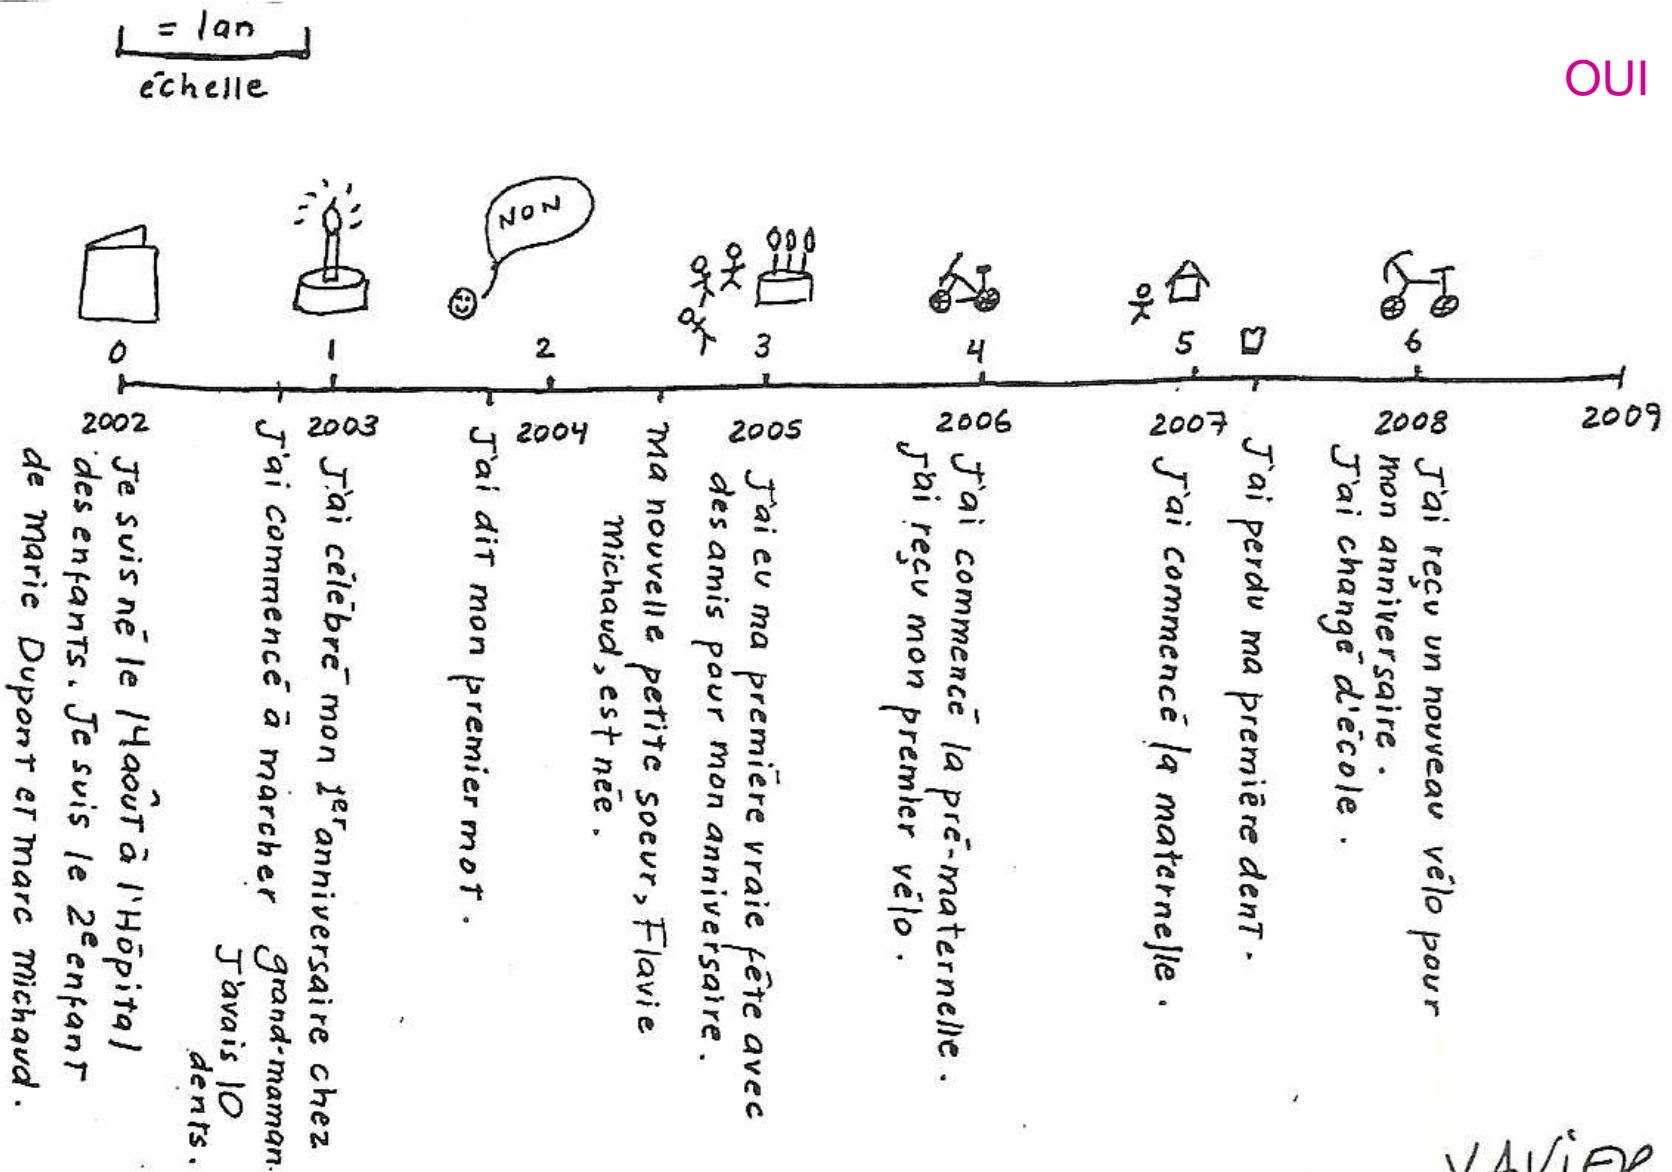 = 1 an
échelle
OUI
NON
0 1 2 3 4 5 6
2002 2003 2004 2005 2006 2007 2008 2009
Je suis né le 14 août à l'Hôpital
des enfants. Je suis le 2e enfant
de Marie Dupont et Marc Michaud.
J'ai commencé à marcher
J'ai célébré mon 1er anniversaire chez
grand-maman.
J'avais 10
dents.
J'ai dit mon premier mot.
Ma nouvelle petite soeur, Flavie
Michaud, est née.
J'ai eu ma première vraie fête avec
des amis pour mon anniversaire.
J'ai commencé la pré-maternelle.
J'ai reçu mon premier vélo.
J'ai commencé la maternelle.
J'ai perdu ma première dent.
J'ai reçu un nouveau vélo pour
mon anniversaire.
J'ai changé d'école.
XAViER